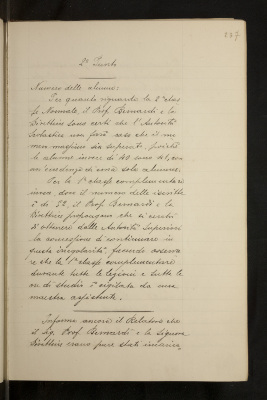 2º Punto
Numero delle alunne:
Per quanto riguarda la 2ª clas
se Normale, il Prof. Bernardi e la
Direttrice sono certi che l'Autorità
Scolastica non farà caso che il nu
mero magg... sia superato, poichè
le alunne invece di 40 sono 41, con
un'eccedenza di una sola alunna.
Per la 1ª classe complementare
invece, dove il numero delle iscritte
è di 52, il Prof. Bernardi e la
Direttrice propongono che si cerchi
d'ottenere dalle Autorità Superiori
la concessione di continuare in
questa irregolarità, facendo osserva
re che la 1ª classe complementare
durante tutte le lezioni e tutte le
ore di studio è vigilata da una
maestra assistente.
Informa ancora il Relatore che
il Sig. Prof. Bernardi e la Signora
Direttrice erano pure stati incarica